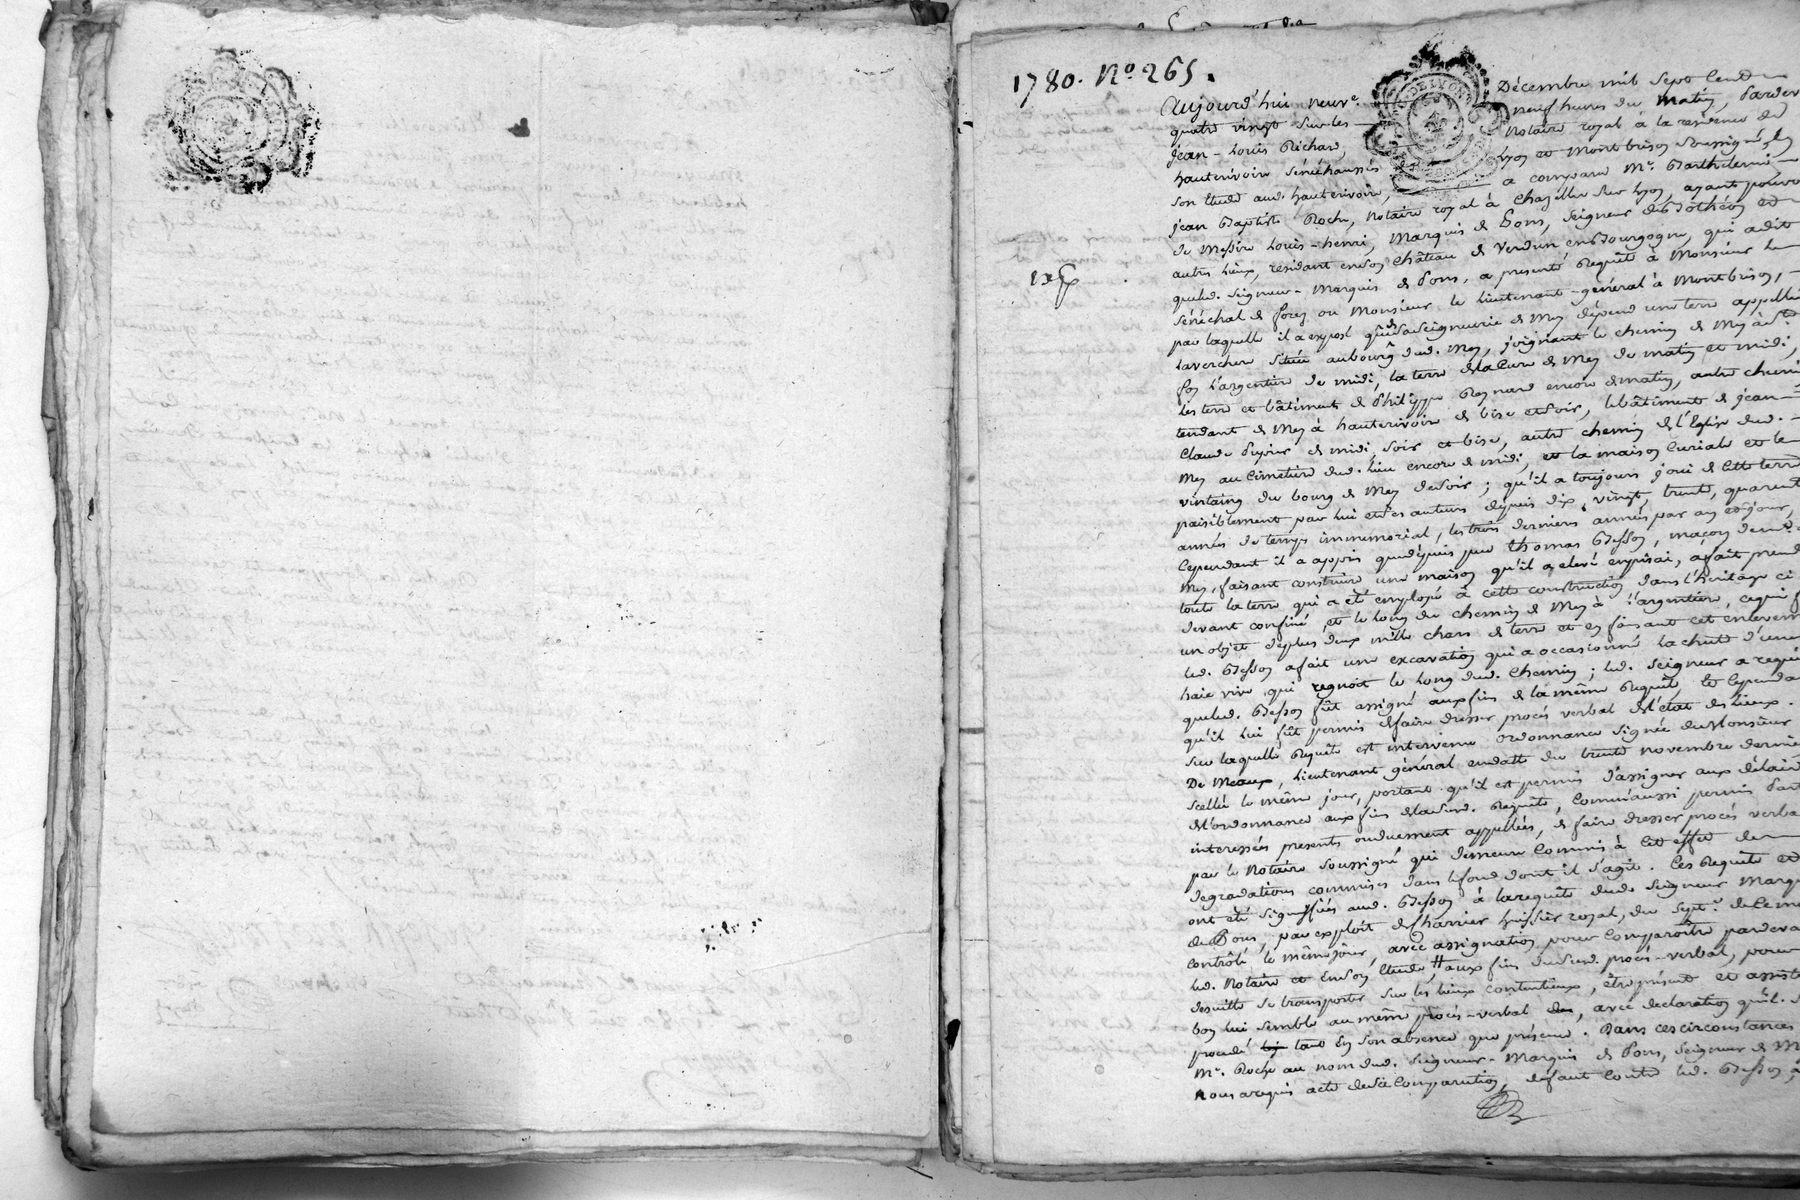 1780. N.º 265.
Aujourd'hui neuve. Décembre mil sept Cent
quatre vingt sur les neuf heures du matin, Pardev
Jean-Louis Richard, Notaire royal à la residence de
hauterivoire Sénéchaussés Lyon et Montbrison soussigné, En
son Etude aud. hauterivoire, a comparu Mr. Barthelemi-
jean Baptiste Roche, Notaire royal à Chazelles sur Lyon, ayant pouvo
de Messire Louis-henri, Marquis de Pons, Seigneur de Bothéon et
autres Lieux, residant en son Château de Verdun en Bourgogne, qui a dit
que led. Seigneur-Marquis de Pons, a presenté Requête à Monsieur le
Sénéchal de forez ou Monsieur le Lieutenant-général à Montbrison,
par laquelle il a exposé que de sa seigneurie de Mey dépend une terre appellée
Laverchere située au bourg dud. Mey, joignant le chemin de Mey à St.
foy L'argentiere de midi, la terre de la Cure de Mey de matin et midi,
les terre et bâtiments de Philippe Reynard encore de matin, autre chemin
tendant de Mey à hauterivoire de bise et soir, le bâtiment de jean-
Claude Dupuis de midi, soir et bise, autre chemin de l'Eglise dud.
Mey au Cimetiere dud. lieu encore de midi, et la maison Curiale et le
vintaing du bourg de Mey de soir; qu'il a toujours joui de Cette terre
paisiblement par lui et ses auteurs depuis dix, vingt, trente, quarante
années de temps immemorial, les trois derniers années par an et jour,
Cependant il a appris que depuis peu thomas Besson, maçon dem.t à
Mey, faisant construire une maison qu'il a elevé en pisai, a fait prend
toute la terre qui a été employé à cette construction dans l'héritage ci
devant confiné, et le long du chemin de Mey à l'argentiere, ce qui f
un objet de plus deux mille chars de terre et en faisant cet enlevem
led. Besson a fait une excavation qui a occasionné la chute d'une
haie vive, qui regnoit le long dud. Chemin; led. Seigneur a requi
que led. Besson fût assigné aux fins de la même Requête, Et Cependa
qu'il lui fût permis de faire dresser procès verbal de l'état des Lieux.
Sur laquelle Requête est intervenue Ordonnance signée de Monsieur
De Meaux, Lieutenant général en datte du trente novembre dernie
scellée le même jour, portant qu'il est permis d'assigner aux délais
de l'ordonnance aux fins de lad. Requête, Comm'aussi permis Part
interessées presents ou duement appellées, de faire dresser procès verba
par le Notaire soussigné qui demeure Commis à Cet effet de
degradations commises dans le fond dont il s'agit. Ces Requête et
ont été signiffiées aud. Besson à la requête dud. Seigneur Marqu
de Pons, par exploit de Charrier huissier royal, du Sept.e de Ce mo
Contrôlé le même jour, avec assignation pour Comparoître pardeva
led. Notaire et En son Etude # aux fins dud. procès-verbal, pour
desuitte se transporter sur les lieux contentieux, être présent et assiste
bon lui semble au même procès-verbal, avec declaration qu'il s
procedé tant En son absence que présence. Dans ces circonstances
Mr. Roche au nom dud. Seigneur-Marquis de Pons, Seigneur de M
Nous a requis acte de sa Comparution, defaut Contre led. Besson,